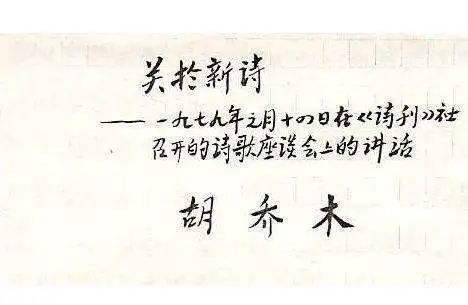 关於新诗
—— 一九七九年元月十四日在《诗刊》社
召开的诗歌座谈会上的讲话
胡乔木